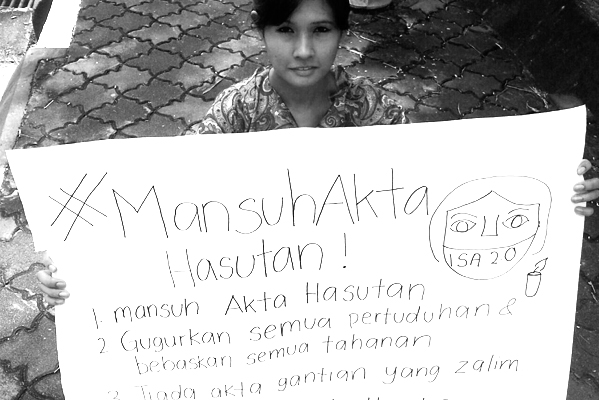 #MansuhAkta
Hasutan!
ISA 2.0
1. mansuh Akta Hasutan
2 Gugurkan semua pertuduhan &
bebaskan semua tahanan
3 Tiada akta gantian yang zalim